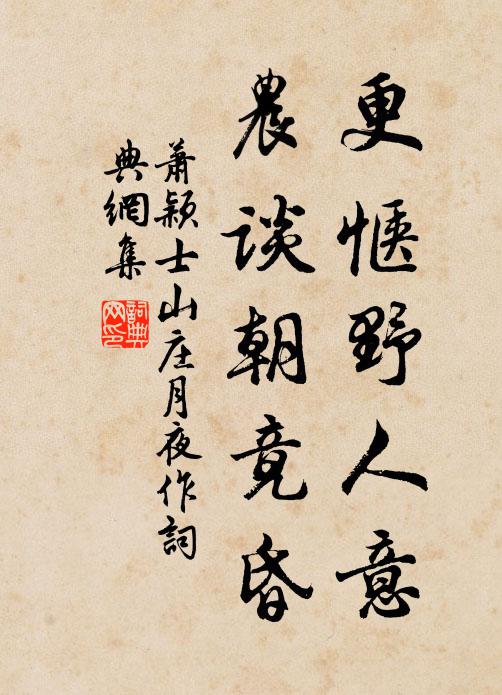 更惬野人意
農談朝竟昏
蕭穎士山庄月夜作詞
典網集
詞典
网印